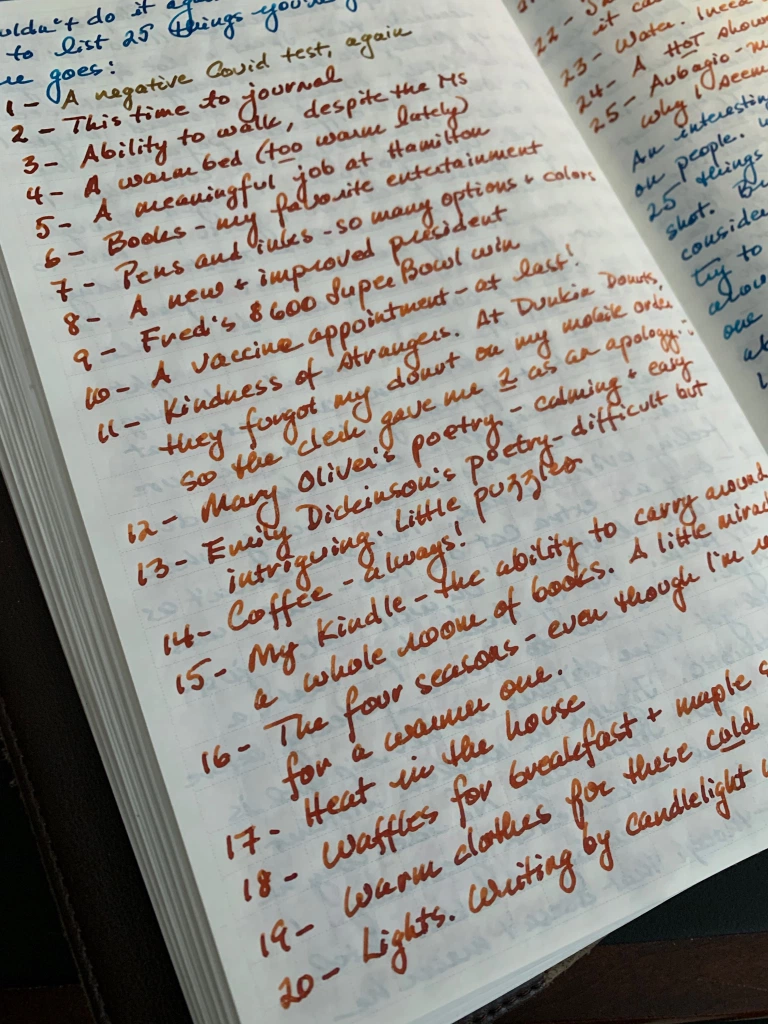 do it
to list 25 things you're
goes:
1 - A negative Covid test, again
2 - This time to journal
3 - Ability to walk, despite the MS
4 - A warm bed (too warm lately)
5 - A meaningful job at Hamilton
6 - Books - my favorite entertainment
7 - Pens and inks - so many options + colors
8 - A new + improved president
9 - Fred's $600 Super Bowl win
10 - A vaccine appointment - at last!
11 - Kindness of strangers. At Dunkin Donuts,
they forgot my donut on my mobile order
so the clerk gave me 2 as an apology.
12 - Mary Oliver's poetry - calming + easy
13 - Emily Dickinson's poetry - difficult but
intriguing. Little puzzles
14 - Coffee - always!
15 - My Kindle - the ability to carry around
a whole room of books. A little
16 - The four seasons - even though I'm
for a warmer one.
17 - Heat in the house
18 - Waffles for breakfast + maple
19 - Warm clothes for these cold
20 - Lights. Writing by candlelight
22 -
it
23 - Water. I need
24 - A HOT
25 - Aubagio -
why I seem
An interesting
on people.
25 things
shot.
try to
one